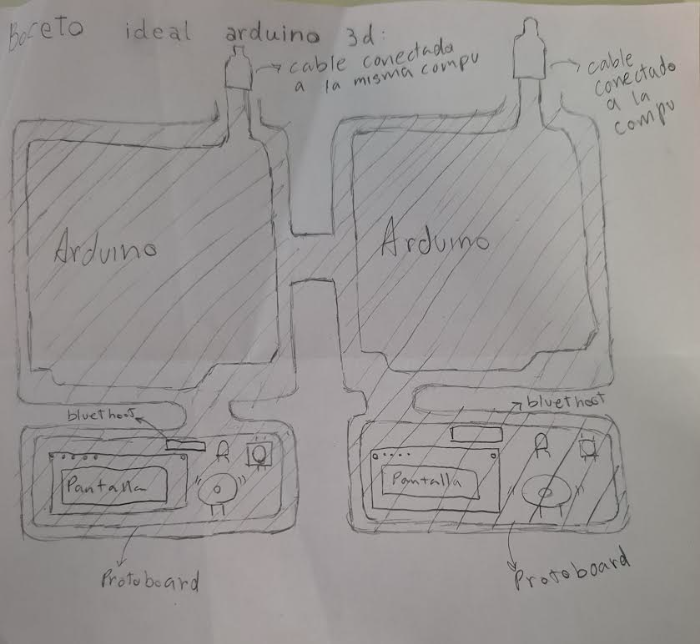 Boceto ideal arduino 3d:
cable conectado
a la misma compu
cable
conectado
a la
compu
Arduino
Arduino
bluethoot
bluethoot
Pantalla
Pantalla
Protoboard
Protoboard